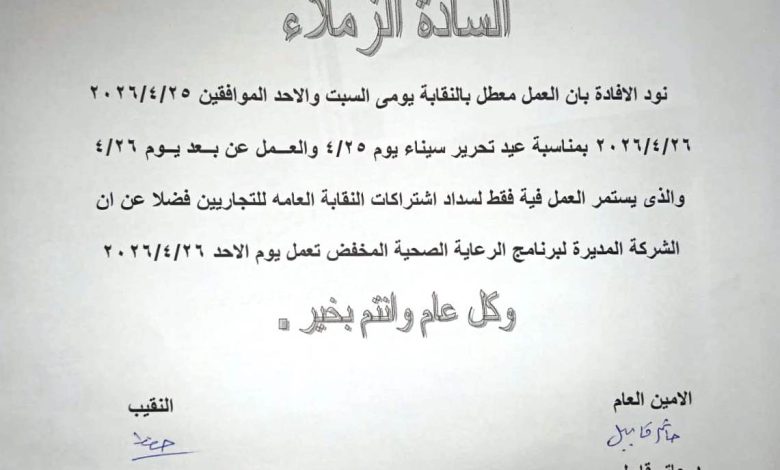 السادة الزملاء
نود الافادة بان العمل معطل بالنقابة يومى السبت والاحد الموافقين ٢٠٢٦/٤/٢٥
٢٠٢٦/٤/٢٦ بمناسبة عيد تحرير سيناء يوم ٤/٢٥ والعـــمل عن بــعد يــوم ٤/٢٦
والذى يستمر العمل فية فقط لسداد اشتراكات النقابة العامه للتجاريين فضلا عن ان
الشركة المديرة لبرنامج الرعاية الصحية المخفض تعمل يوم الاحد ٢٠٢٦/٤/٢٦
وكل عام وانتم بخير .
الامين العام
النقيب